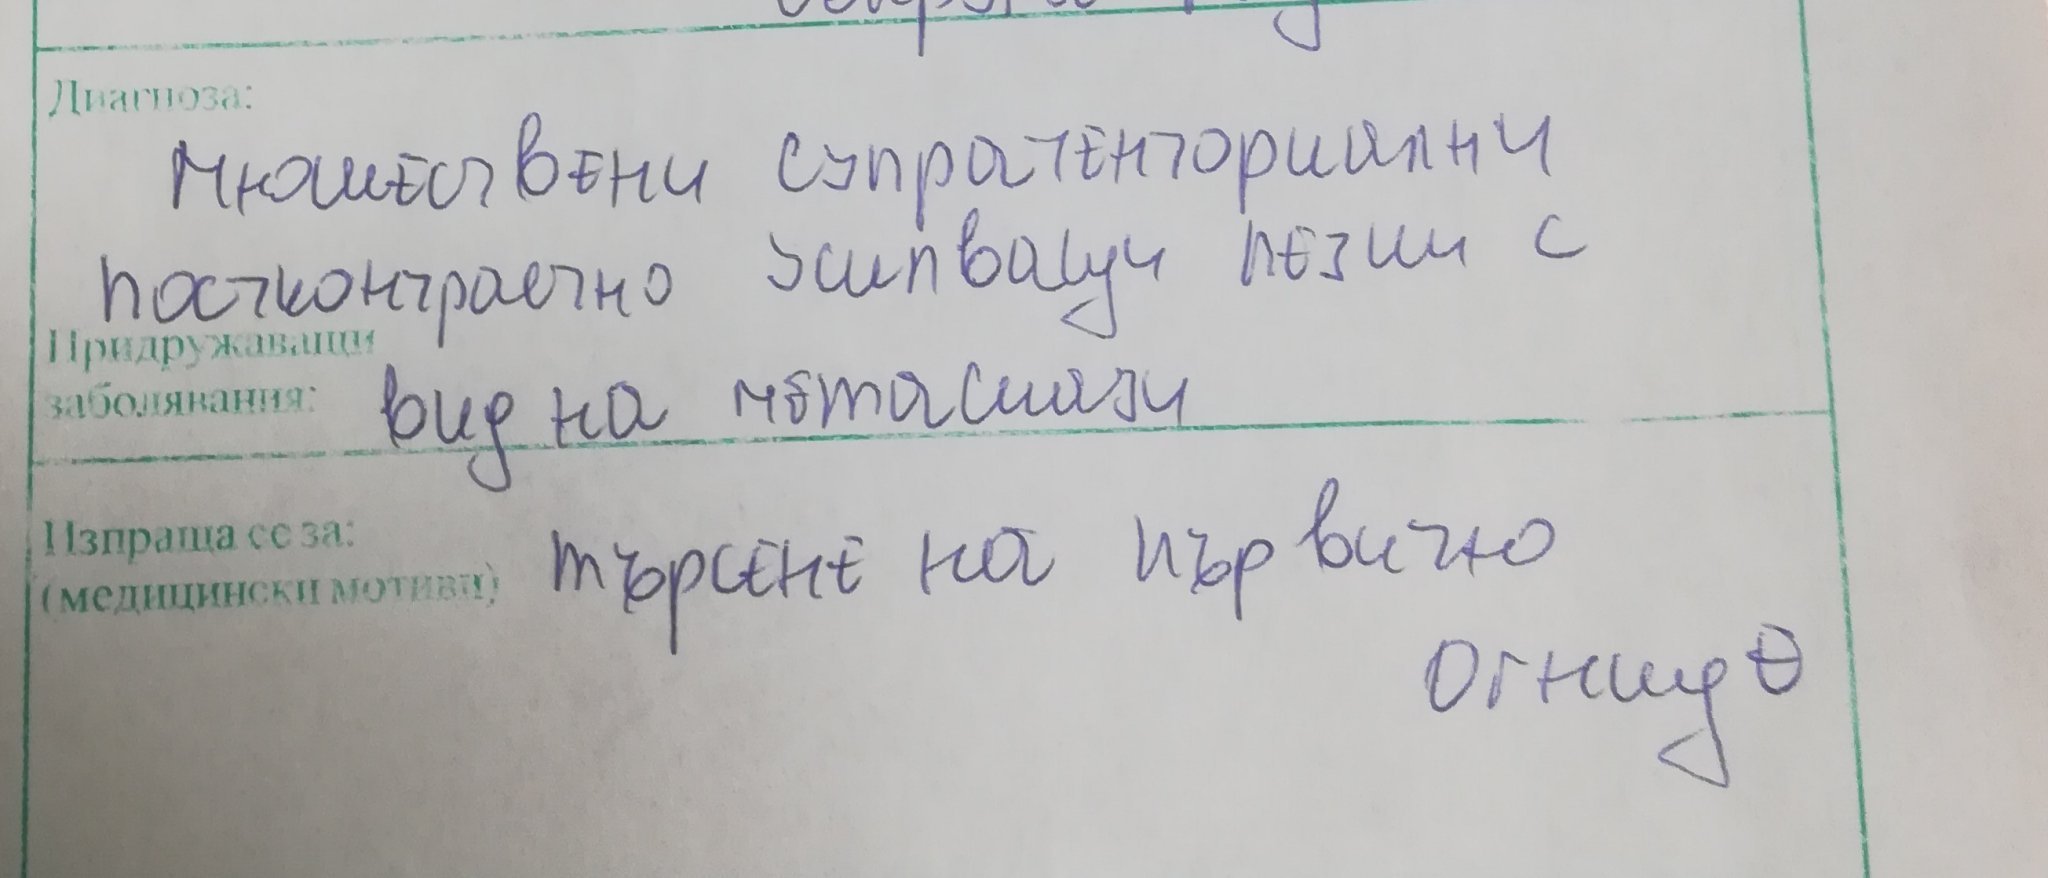 Диагноза:
Множествени супратенториални
постконтрастно усилващи лезии с
Придружаващи
заболявания: вид на метастази
Изпраща се за:
(медицински мотиви) търсене на първично
огнище